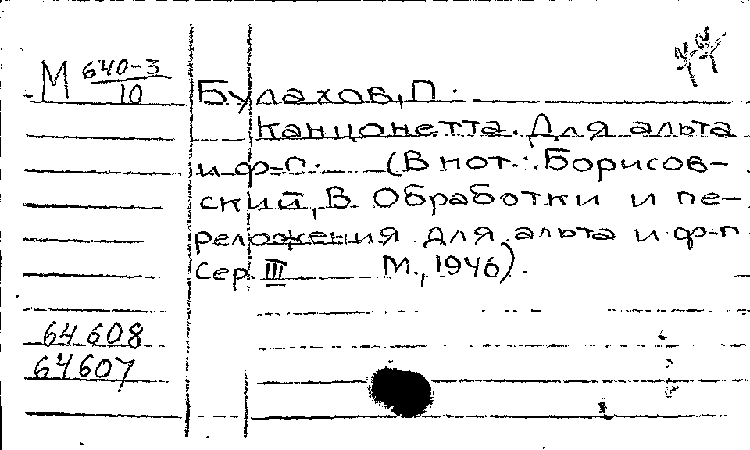 М 640-3
10
Булахов, П.
Канцонетта. Для альта
и ф-п. (В нот.: Борисов-
ский, В. Обработки и пе-
реложения для альта и ф-п
Сер. III М., 1946).
64608
64607